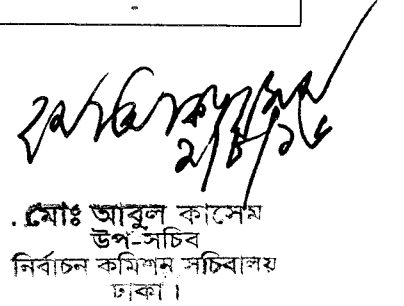 মোঃ আবুল কাসেম
উপ-সচিব
নির্বাচন কমিশন সচিবালয়
ঢাকা।